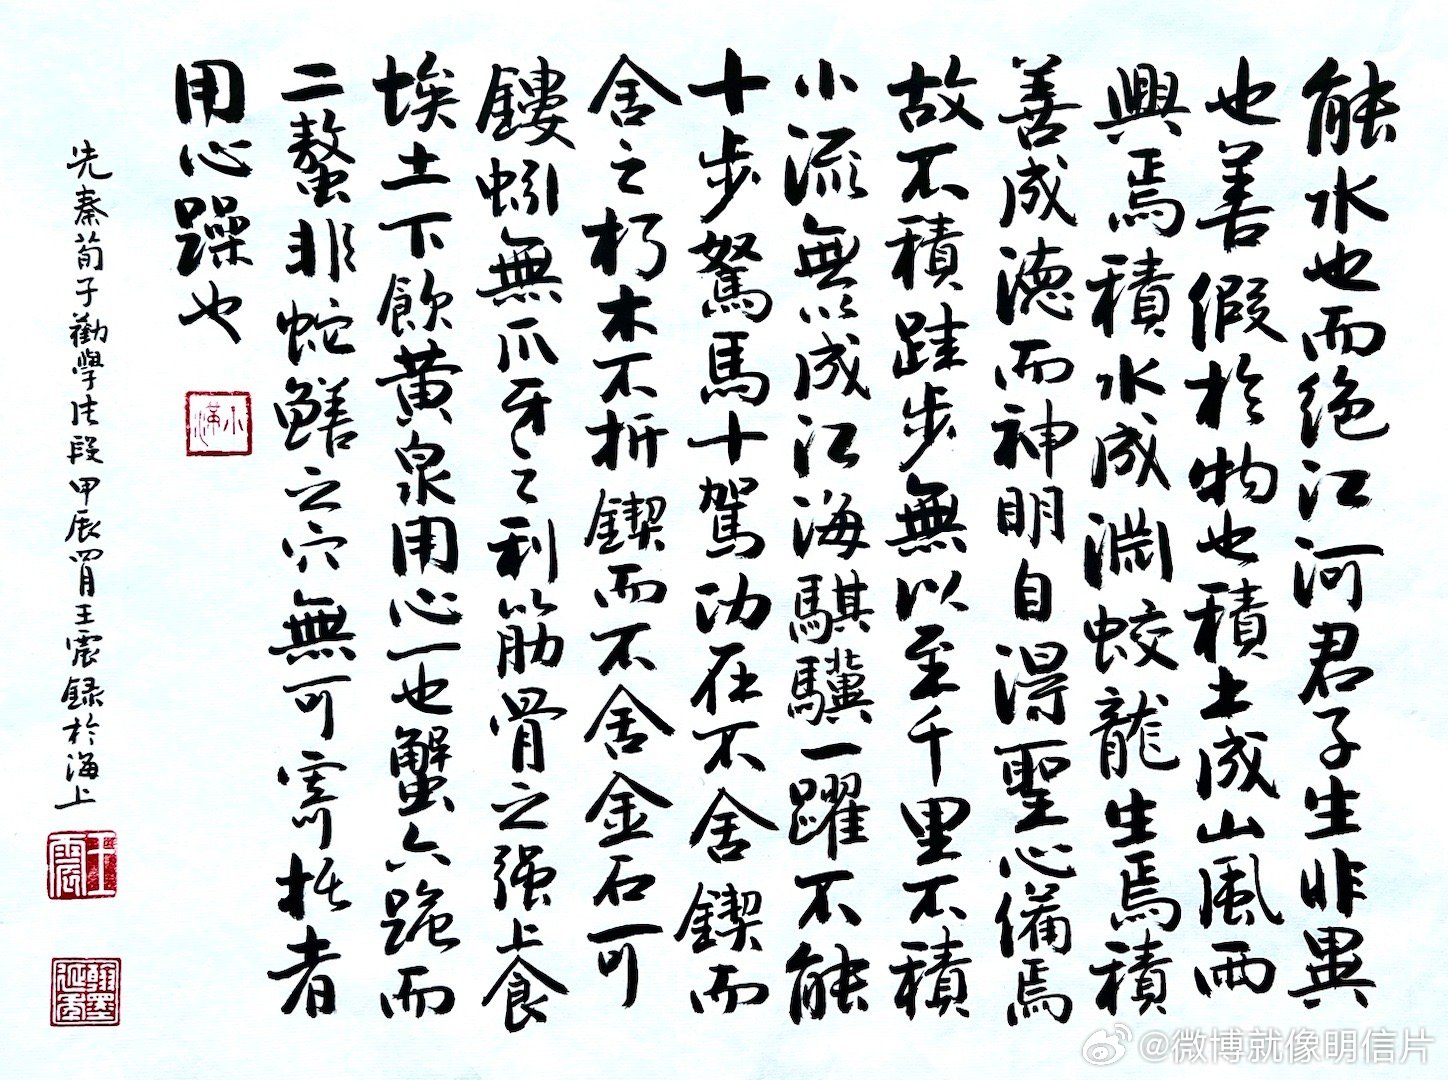 能水也而绝江河君子生非異
也善假於物也積土成山風雨
興焉積水成淵蛟龍生焉積
善成德而神明自得聖心備焉
故不積跬步無以至千里不積
小流無以成江海騏驥一躍不能
十步駑馬十駕功在不舍鍥而
舍之朽木不折鍥而不舍金石可
鏤蚓無爪牙之利筋骨之强上食
埃土下飲黄泉用心一也蟹六跪而
二螯非蛇鱔之穴無可寄托者
用心躁也
先秦荀子勸學片段甲辰四月王震録於海上
王震
@微博就像明信片